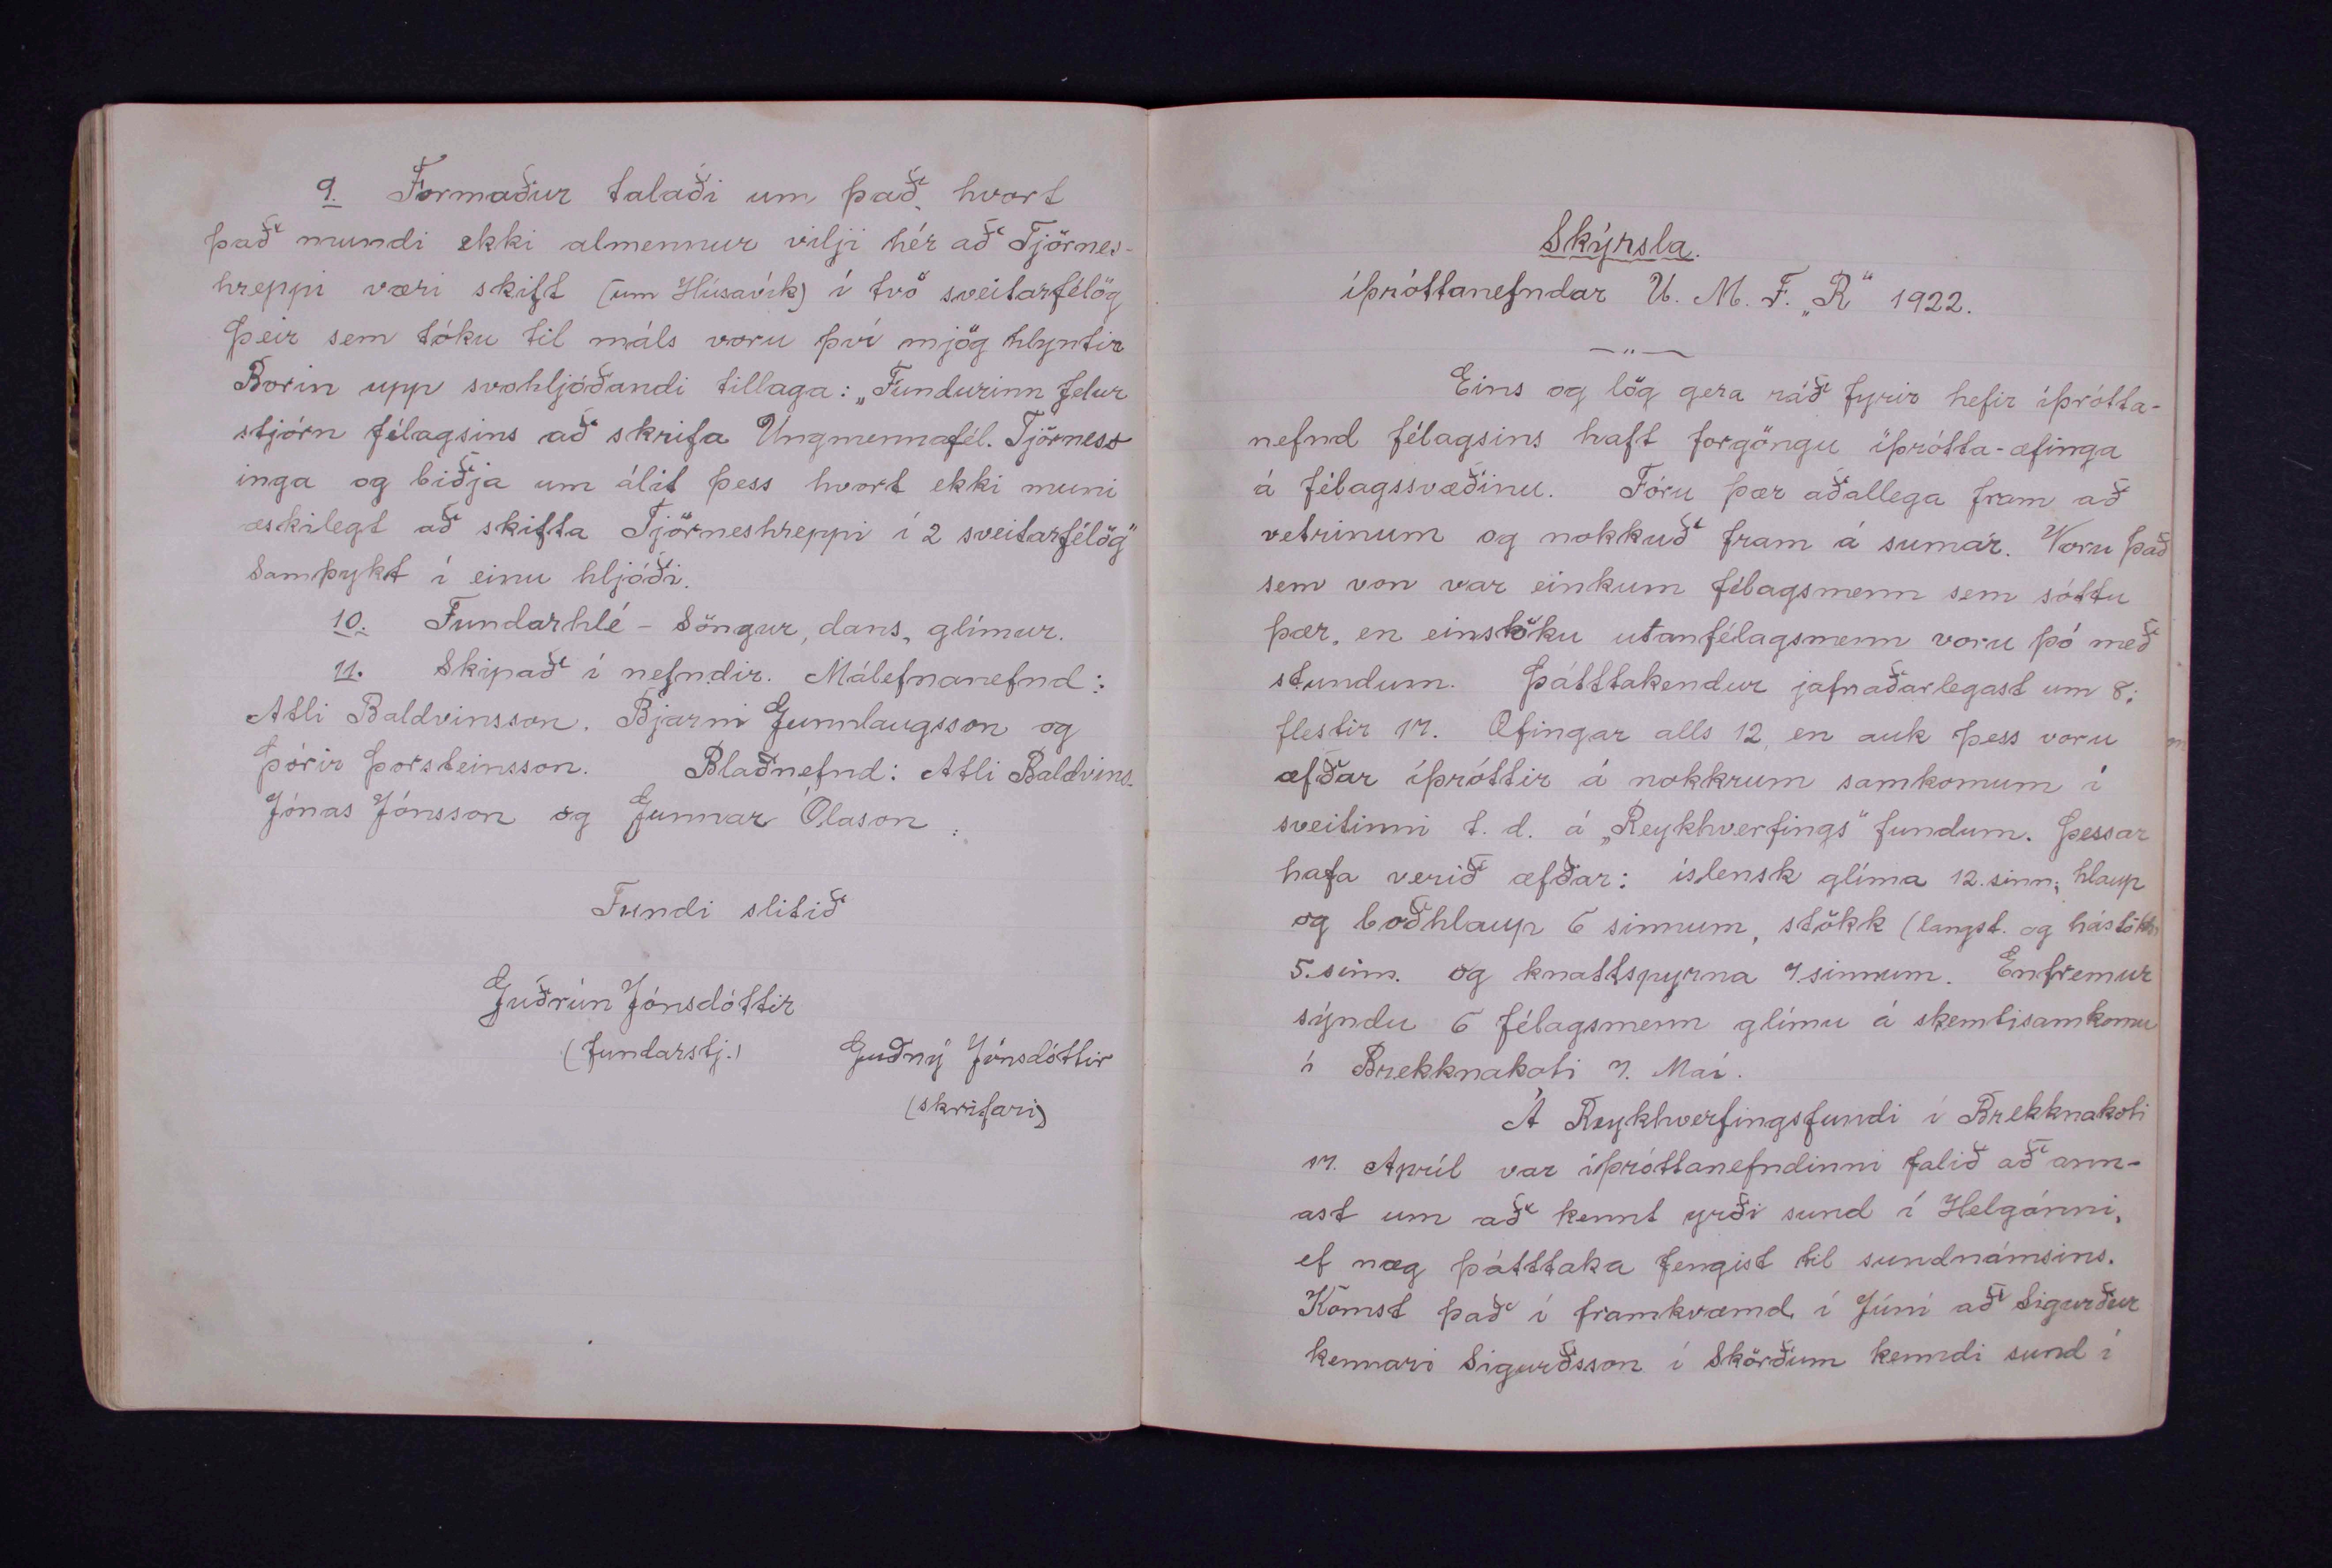 9. Formaður talaði um það, hvort
það mundi ekki almennur vilji hér að Tjörnes-
hreppi væri skift (um Húsavík) í tvö sveitarfélög
Þeir sem tóku til máls voru því mjög hlyntir
Borin upp svohljóðandi tillaga: „Fundurinn felur
stjórn félagsins að skrifa Ungmennafél. Tjörness
inga og biðja um álit þess hvort ekki muni
æskilegt að skifta Tjörneshreppi í 2 sveitarfélög"
Samþykt í einu hljóði.
10. Fundarhlé - Söngur, dans, glímur.
11. Skipað í nefndir. Málefnanefnd:
Atli Baldvinsson. Bjarni Gunnlaugsson og
Þórir Þorsteinsson. Blaðnefnd: Atli Baldvins-
Jónas Jónsson og Gunnar Ólason.
Fundi slitið
Guðrún Jónsdóttir
(fundarstj.) Guðný Jónsdóttir
(skrifari)
Skýrsla.
íþróttanefndar U. M. F. „R" 1922.
— " —
Eins og lög gera ráð fyrir hefir íþrótta-
nefnd félagsins haft forgöngu íþrótta-æfinga
á félagssvæðinu. Fóru þær aðallega fram að
vetrinum og nokkuð fram á sumar. Voru það
sem von var einkum félagsmenn sem sóttu
þær, en einstöku utanfélagsmenn voru þó með
stundum. Þátttakendur jafnaðarlegast um 8;
flestir 17. Æfingar alls 12, en auk þess voru
æfðar íþróttir á nokkrum samkomum í
sveitinni t. d. á „Reykhverfings" fundum. Þessar
hafa verið æfðar: íslensk glíma 12. sinn; hlaup
og boðhlaup 6 sinnum, stökk (langst. og hástökk)
5. sinn. og knattspyrna 7. sinnum. Enfremur
sýndu 6 félagsmenn glímu á skemtisamkomu
í Brekknakoti 7. Maí.
Á Reykhverfingsfundi í Brekknakoti
17. Apríl var íþróttanefndinni falið að ann-
ast um að kennt yrði sund í Helgánni,
ef næg þátttaka fengist til sundnámsins.
Komst það í framkvæmd í Júní að Sigurður
kennari Sigurðsson í Skörðum kenndi sund í